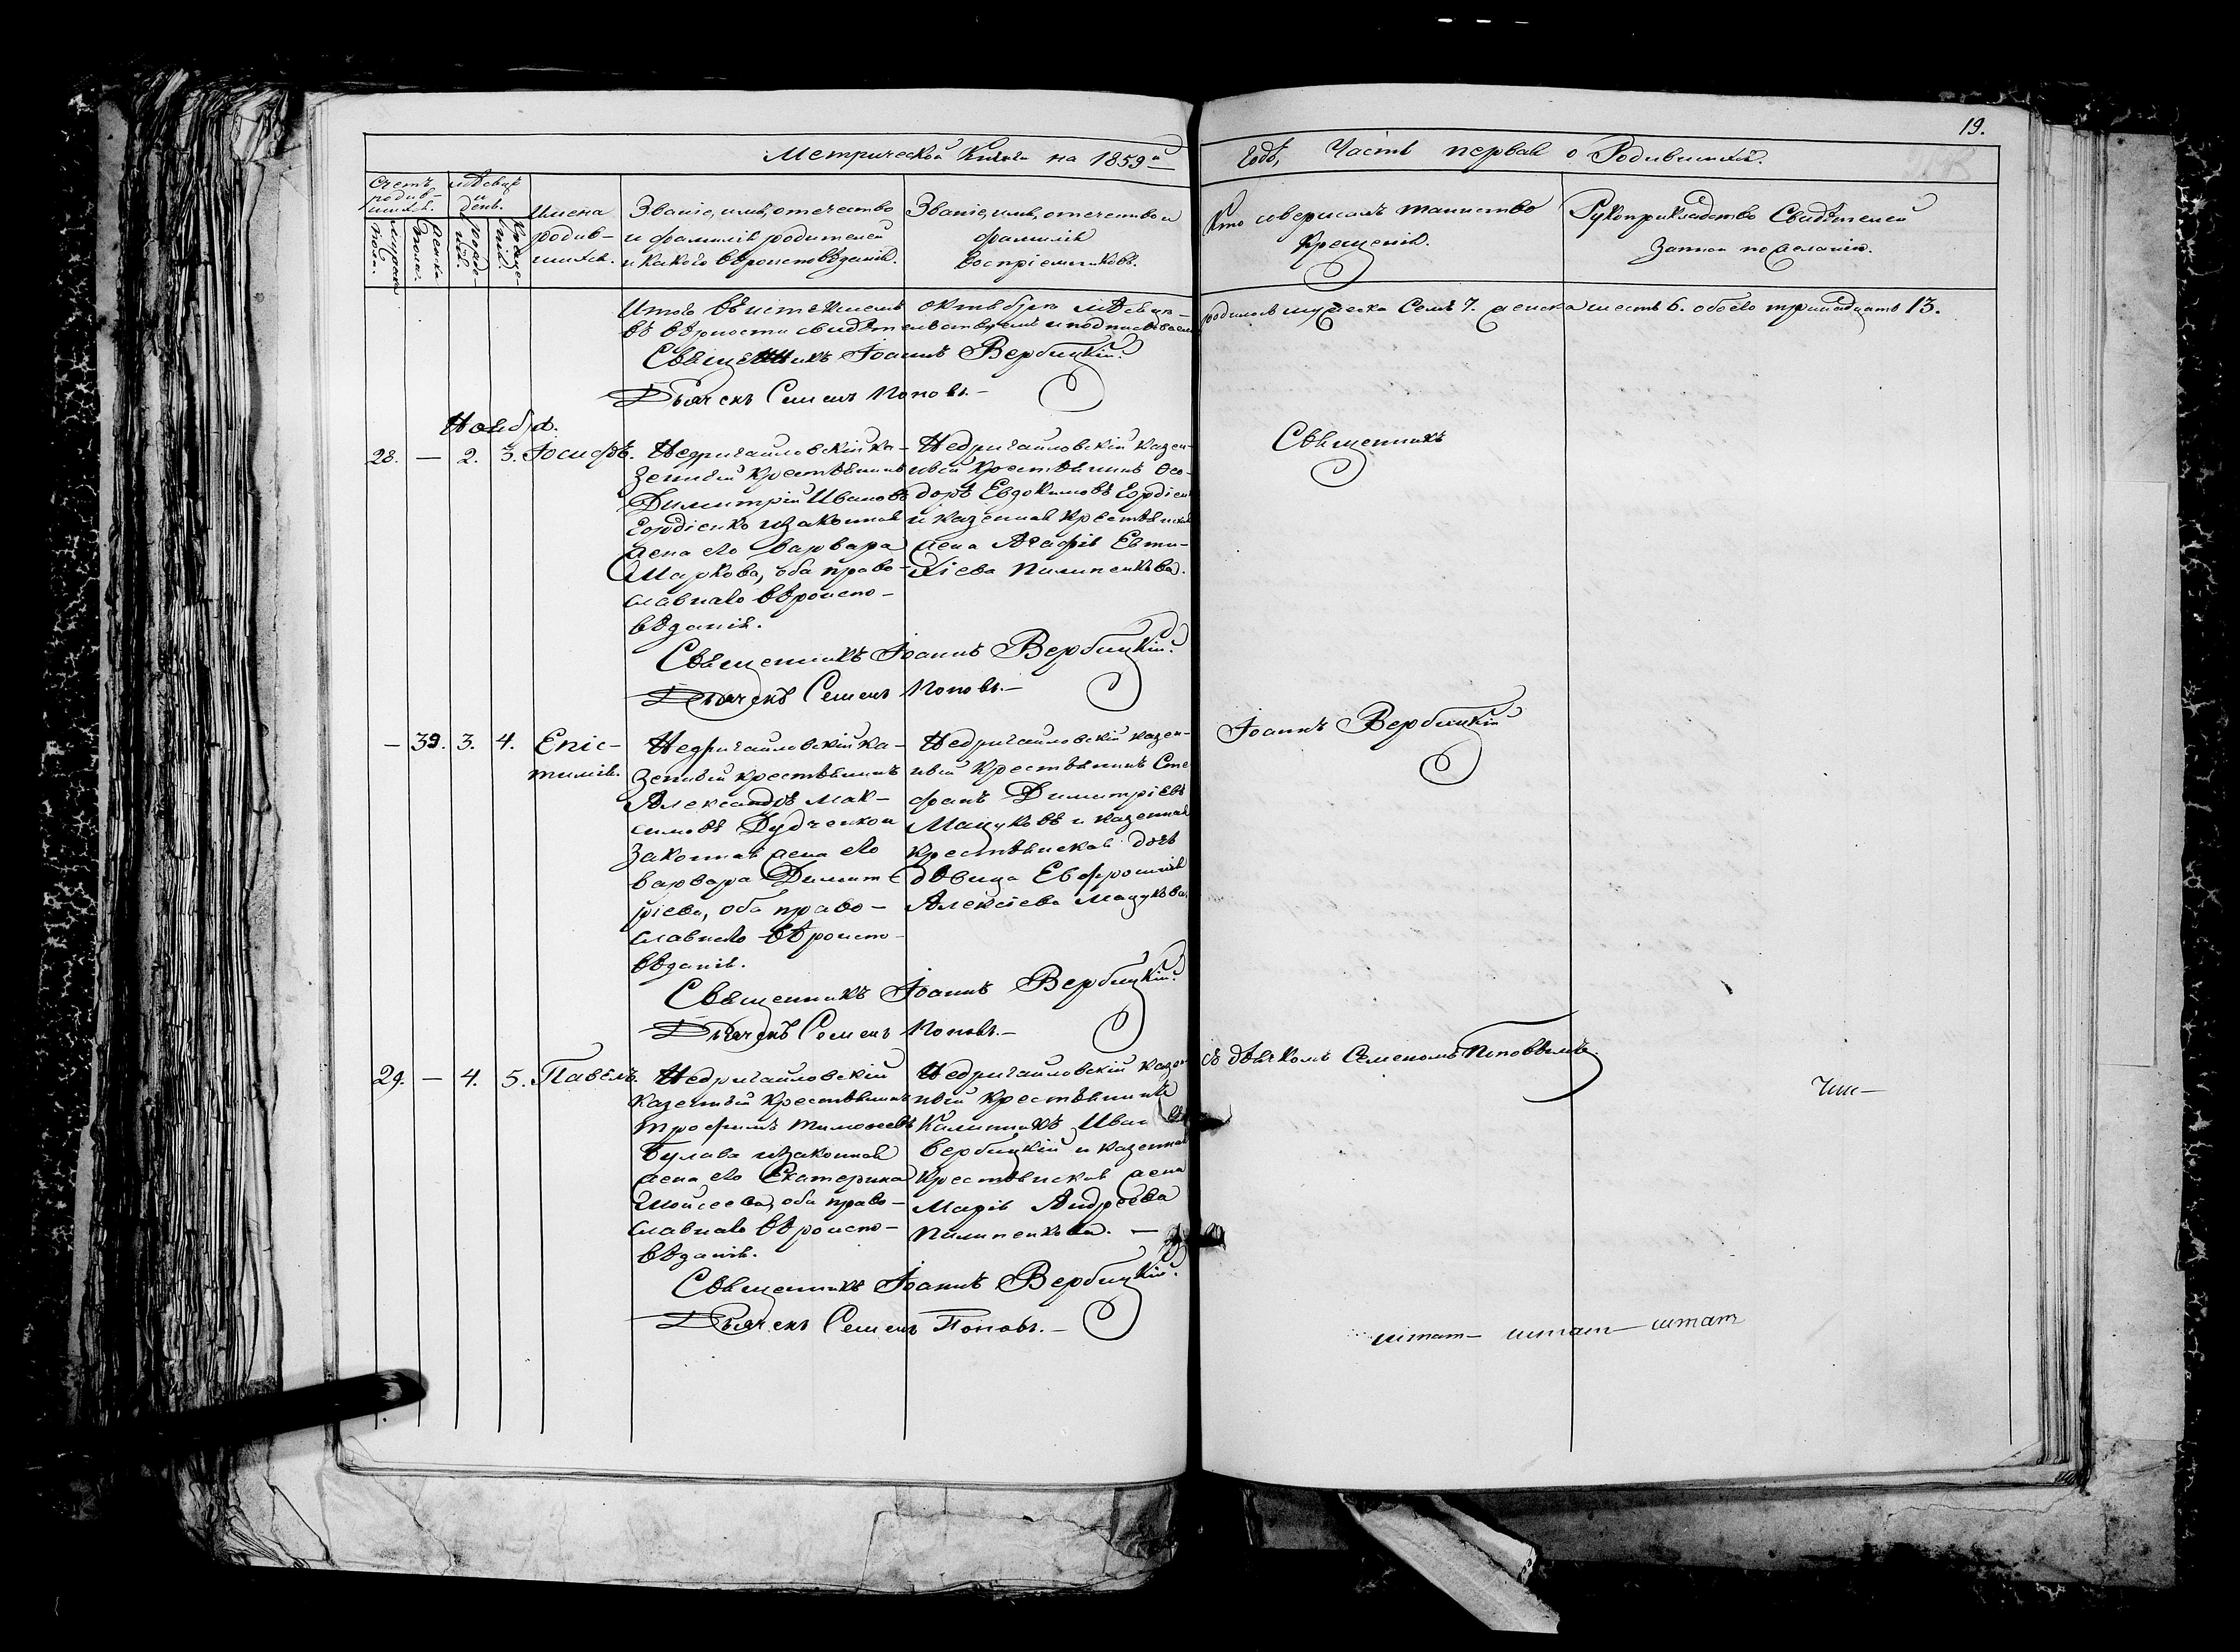 19.
Метрической Книги на 1859й
Годъ, Часть первая о Родившихся.
Счетъ родив-шихся.
Мужеска пола.
Женска пола.
Мѣсяцъ и день.
Рожде-нія.
Креще-нія.
Имена родив-шихся.
Званіе, имя, отечество
и фамилія родителей
и какого вѣроисповѣданія.
Званіе, имя, отечество и
фамилія
Воспріемниковъ.
Кто совершалъ таинство
Крещенія.
Рукоприкладство Свидѣтелей
Записи по желанію.
Итого въ истекшемъ октябрѣ мѣсяцѣ родилось мужеска Семь 7. женска шесть 6. обоего тринадцать 13.
въ вѣрности свидѣтельствуемъ и подписываемъ
Священникъ Іоаннъ Вербицкій.
Дьячекъ Семенъ Поповъ.—
Ноября.
28. — 2. 3. Іосифъ.
Недригайловскій ка-
зенный крестьянинъ
Димитрій Ивановъ
Гордіенко и законная
жена его Варвара
Маркова, оба право-
славнаго вѣроиспо-
вѣданія.
Недригайловскій казен-
ный крестьянинъ Ѳео-
доръ Евдокимовъ Гордіен
и казенная крестьянская
жена Агафія Евти-
хіева Пилипенкова.
Священникъ
Священникъ Іоаннъ Вербицкій.
Дьячекъ Семенъ Поповъ.—
— 39. 3. 4. Епис-
тимія.
Недригайловскій ка-
зенный крестьянинъ
Александръ Мак-
симовъ Дудченко и
законная жена его
Варвара Димит-
ріева, оба право-
славнаго вѣроиспо-
вѣданія.
Недригайловскій казен-
ный крестьянинъ Сте
фанъ Димитріевъ
Мацуковъ и казенная
крестьянская дочь
дѣвица Евфросинія
Алексіева Мацукова.
Іоаннъ Вербицкій
Священникъ Іоаннъ Вербицкій.
Дьячекъ Семенъ Поповъ.—
29. — 4. 5. Павелъ.
Недригайловскій
казенный крестьянинъ
Трофимъ Тимофеевъ
Булава и законная
жена его Екатерина
Моисеева, оба право-
славнаго вѣроиспо-
вѣданія.
Недригайловскій казен
ный крестьянинъ
Калинникъ Иван
Вербицкій и казенная
крестьянская жена
Марія Андреева
Пилипенкова. —
съ дьячкомъ Семеномъ Поповымъ.
Чи—
Священникъ Іоаннъ Вербицкій.
Дьячекъ Семенъ Поповъ.—
штат— штат— штат